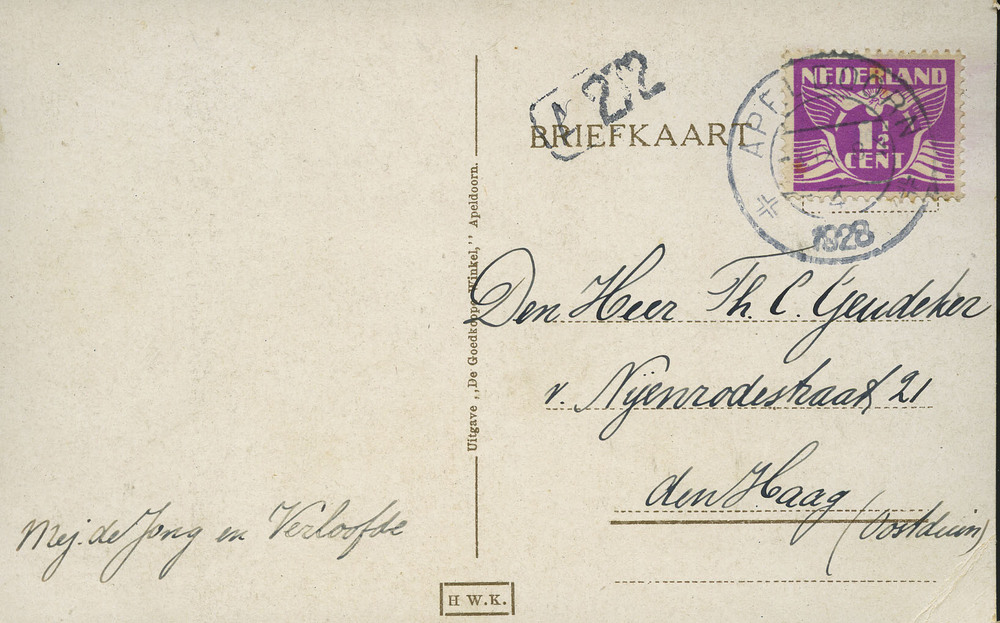 272
BRIEFKAART
NEDERLAND
1½
CENT
APELDOORN
1928
Uitgave ,,De Goedkoope Winkel,'' Apeldoorn.
Den Heer Th. C. Geudeker
v. Nijenrodestraat 21
den Haag
(Oostduin)
Mej. de Jong en Verloofde
H W.K.